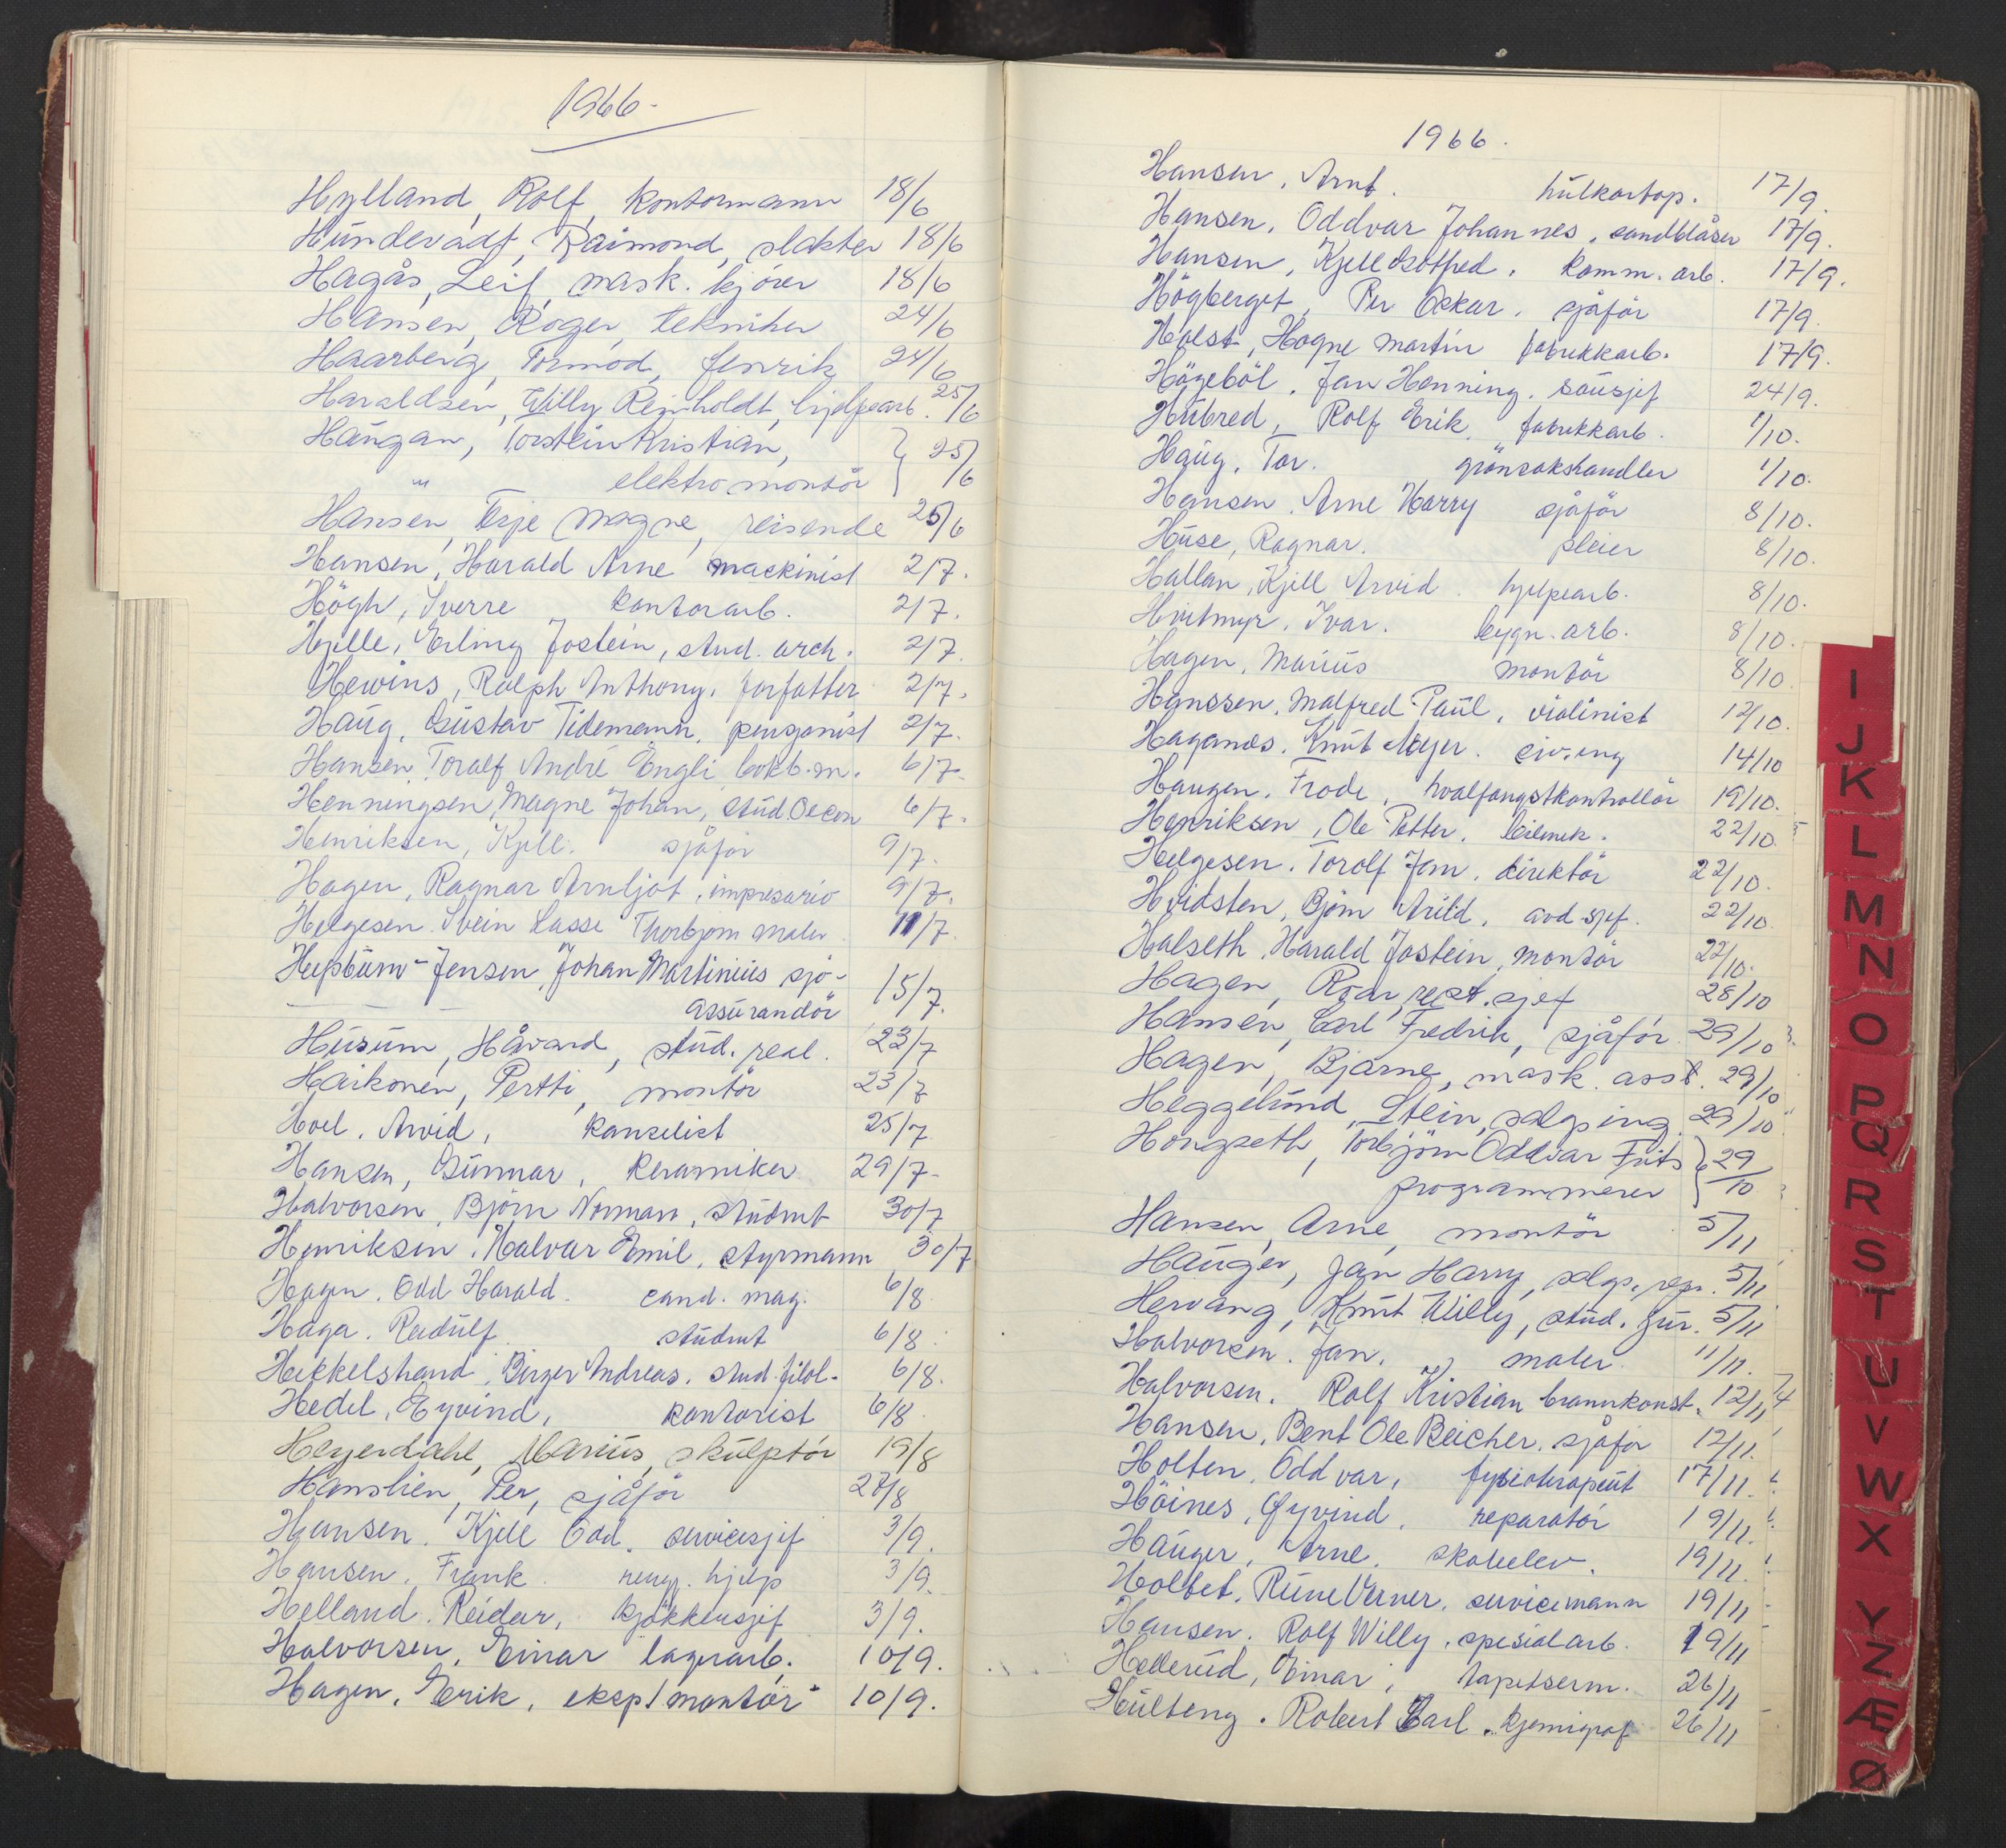 1966.-
Hylland, Rolf, kontormann 18/6
Hundevadt, Raimond, slakter 18/6
Hagås, Leif, mask. kjörer 18/6
Hansen, Roger, tekniker 24/6
Haarberg, Tormod, fenrik 24/6
Haraldsen, Willy Reinholdt, hjelpearb. 25/6
Haugan, Torstein Kristian, } 25/6
" elektromontör
Hansen, Terje Magne, reisende 25/6
Hansen, Harald Arne maskinist 2/7.
Högh, Sverre kontorarb. 2/7.
Hjelle, Erling Jostein, stud. arch. 2/7.
Hewins, Ralph Anthony, forfatter 2/7.
Haug, Gustav Tidemann, pensjonist 2/7.
Hansen, Toralf André Engli, bokb.m. 6/7.
Henningsen, Magne Johan, stud. Oecon 6/7.
Henriksen, Kjell. sjåför 9/7.
Hagen, Ragnar Arnljot, impresario 9/7.
Helgesen. Svein Lasse Thorbjørn maler 11/7.
Hepburn-Jensen, Johan Martinius sjö-
assurandör 15/7.
Husum, Håvard, stud. real. 23/7
Haikonen, Pertti, montör 23/7
Hoel, Arvid, kanselist 25/7
Hansen, Gunnar, keramiker 29/7-
Halvorsen, Björn Norman, student 30/7
Henriksen, Halvar Emil, styrmann 30/7
Hagen. Odd Harald. cand. mag. 6/8
Haga. Reidulf. student 6/8
Hekkelstrand, Birger Andreas. stud. filol. 6/8.
Hedel, Eyvind, kontorist 6/8
Heyerdahl, Marius, skulptör 19/8
Hanslien, Per, sjåför 27/8
Hansen. Kjell Odd. servicesjef 3/9.
Hansen. Frank. rengj. hjelp 3/9.
Helland. Reidar, kjökkensjef 3/9.
Halvorsen, Einar lagerarb. 10/9.
Hagen, Erik, eksp/montör 10/9.
1966.
Hansen, Arnt. hulkortop. 17/9.
Hansen, Oddvar Johannes, sandblåser 17/9.
Hansen, Kjell Gotfred, komm. arb. 17/9.
Högberget, Per Oskar, sjåför 17/9.
Holst, Hogne Martin fabrikkarb. 17/9.
Högeböl, Jan Henning. sousjef 24/9.
Hubred, Rolf Erik, fabrikkarb. 1/10.
Haug, Tor. grönsakshandler 1/10.
Hansen, Arne Harry sjåför 8/10.
Huse, Ragnar. pleier 8/10.
Hallan, Kjell Arvid. hjelpearb. 8/10.
Hvitmyr, Ivar. bygn. arb. 8/10.
Hagen, Marius montör 8/10.
Hanssen, Malfred Paul, violinist 12/10.
Haganæs, Knut Meyer. civ.ing 14/10
Haugen, Frode, hvalfangstkontrollör 19/10.
Henriksen, Ole Petter. bilmek. 22/10
Helgesen, Torolf Jan. direktör 22/10.
Hvidsten, Bjørn Arild, avd. sjef. 22/10
Halseth, Harald Jostein, montör 22/10.
Hagen, Roar, rest. sjef 28/10
Hansen, Carl Fredrik, sjåför 29/10
Hagen, Bjarne, mask. asst. 29/10
Heggelund, Stein, salgsing. 29/10
Hongseth, Torbjörn Oddvar Frits } 29/10
programmerer
Hansen, Arne, montör 5/11
Hauger, Jan Harry, salgs.repr. 5/11
Hervang, Knut Willy, stud. jur. 5/11
Halvorsen. Jan. maler. 11/11.
Halvorsen. Rolf Kristian brannkonst. 12/11
Hansen, Bent Ole Reicher, sjåför 12/11.
Holten, Oddvar, fysioterapeut 17/11.
Höines, Øyvind. reparatör 19/11.
Hauger, Arne. skoleelev. 19/11.
Holtet, Rune Verner, servicemann 19/11
Hansen. Rolf Willy, spesialarb. 19/11
Hellerud, Einar, tapetserm. 26/11
Hulteng. Robert Carl, kjemigraf 26/11
I
J
K
L
M
N
O
P
Q
R
S
T
U
V
W
X
Y
Z
Æ
Ø